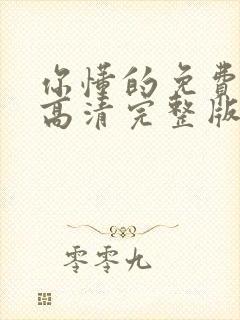 你懂的免费
高清完整版
零零九